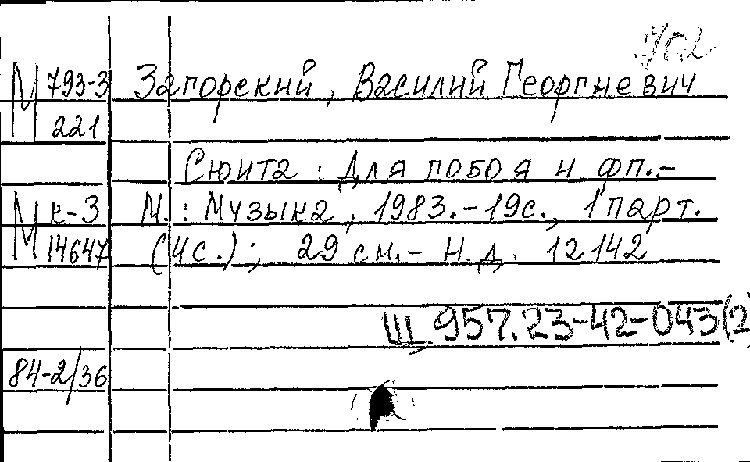 М 793-3 Загорский, Василий Георгиевич
221
Сюита : Для гобоя и фп.-
М к-3 М. : Музыка, 1983.-19с., 1 парт.
14647 (4с.); 29 см.- Н.д. 12142
Щ 957.23-42-043(2)
84-2/36